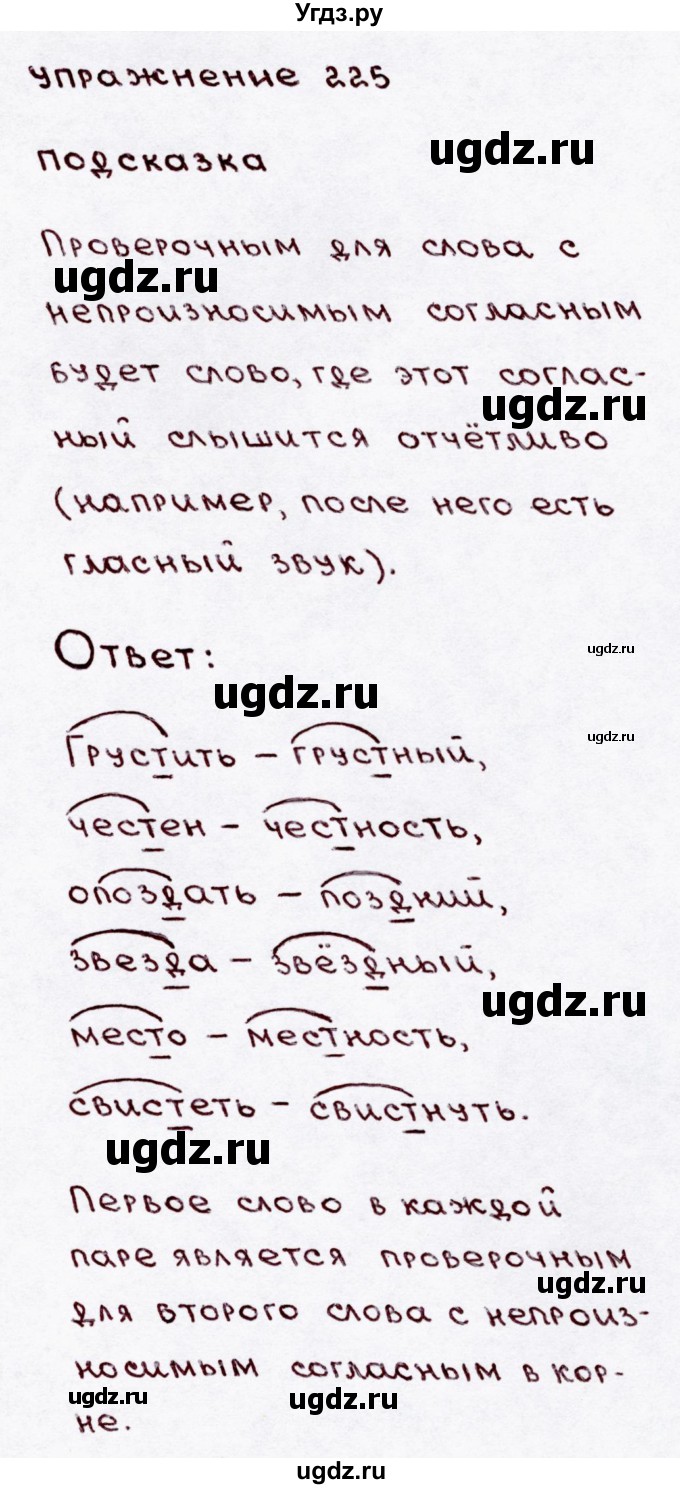 Угдз.ру
упражнение 225
ugdz.ru
подсказка
Проверочным для слова с
ugdz.ru
непроизносимым согласным
будет слово, где этот соглас-
ugdz.ru
ный слышится отчётливо
(например, после него есть
гласный звук).
Ответ:
ugdz.ru
ugdz.ru
ugdz.ru
Грустить – грустный,
честен – честность,
опоздать – поздний,
звезда – звёздный,
ugdz.ru
место – местность,
свистеть – свистнуть.
ugdz.ru
Первое слово в каждой
паре является проверочным
ugdz.ru
для второго слова с непроиз-
носимым согласным в кор-
ugdz.ru
ugdz.ru
не.
ugdz.ru